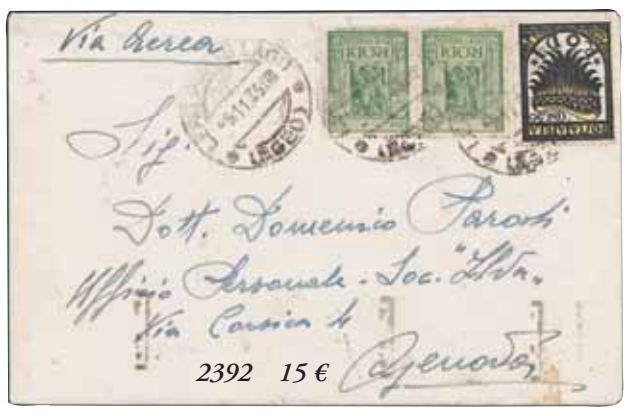 Via Aerea
RODI
RODI
RODI
(EGEO)
(EGEO)
Sig.
Dott. Domenico Parodi
Ufficio Personale - Soc. "Ilva"
Via Corsica 4
Genova
2392 15 €